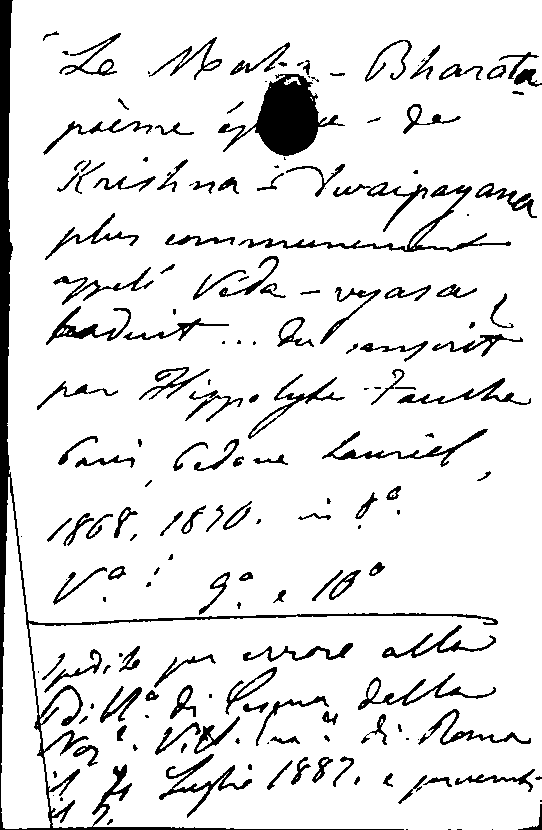 Le Maha-Bharata
poème épique - de
Krishna - Dwaipayana
plus communément
appelé Véda-vyasa,
traduit... du sanscrit
par Hippolyte Fauche
Paris, Durand Lauriel,
1868. 1870. in 8º.
V.º: 9.º e 10º
spedito per errore alla
Bibl.ª di
della
Naz.e Vitt. Em.e di Roma
il Luglio 1887. e
il